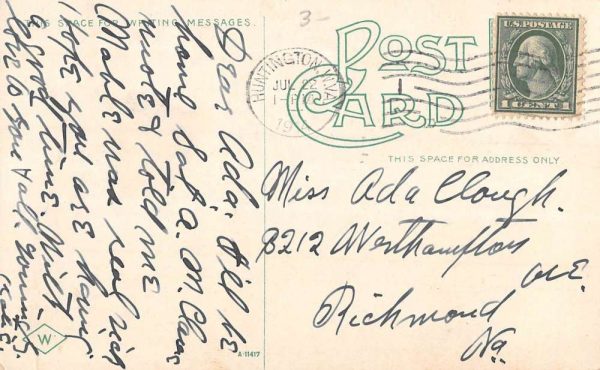 THIS SPACE FOR WRITING MESSAGES.
3-
POST
CARD
HUNTINGTON, W.VA.
JUL 22
1-
19
U.S. POSTAGE
1 CENT 1
THIS SPACE FOR ADDRESS ONLY
Dear Ada; Will be
home Sat. a. m.
wrote & told me
Mable was real
Hope you are having
a good time. With
love to you & all.
Miss Ada Clough.
8212 Westhampton
ave.
Richmond
Va.
W
A-11417